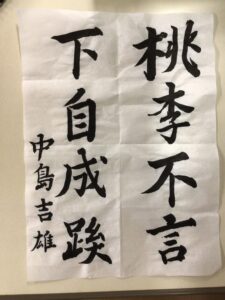 桃李不言
下自成蹊
中島吉雄